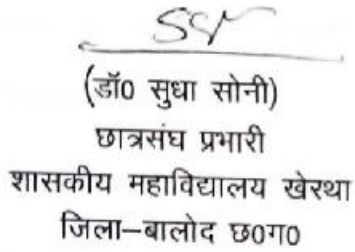 (डॉ0 सुधा सोनी)
छात्रसंघ प्रभारी
शासकीय महाविद्यालय खेरथा
जिला–बालोद छ0ग0